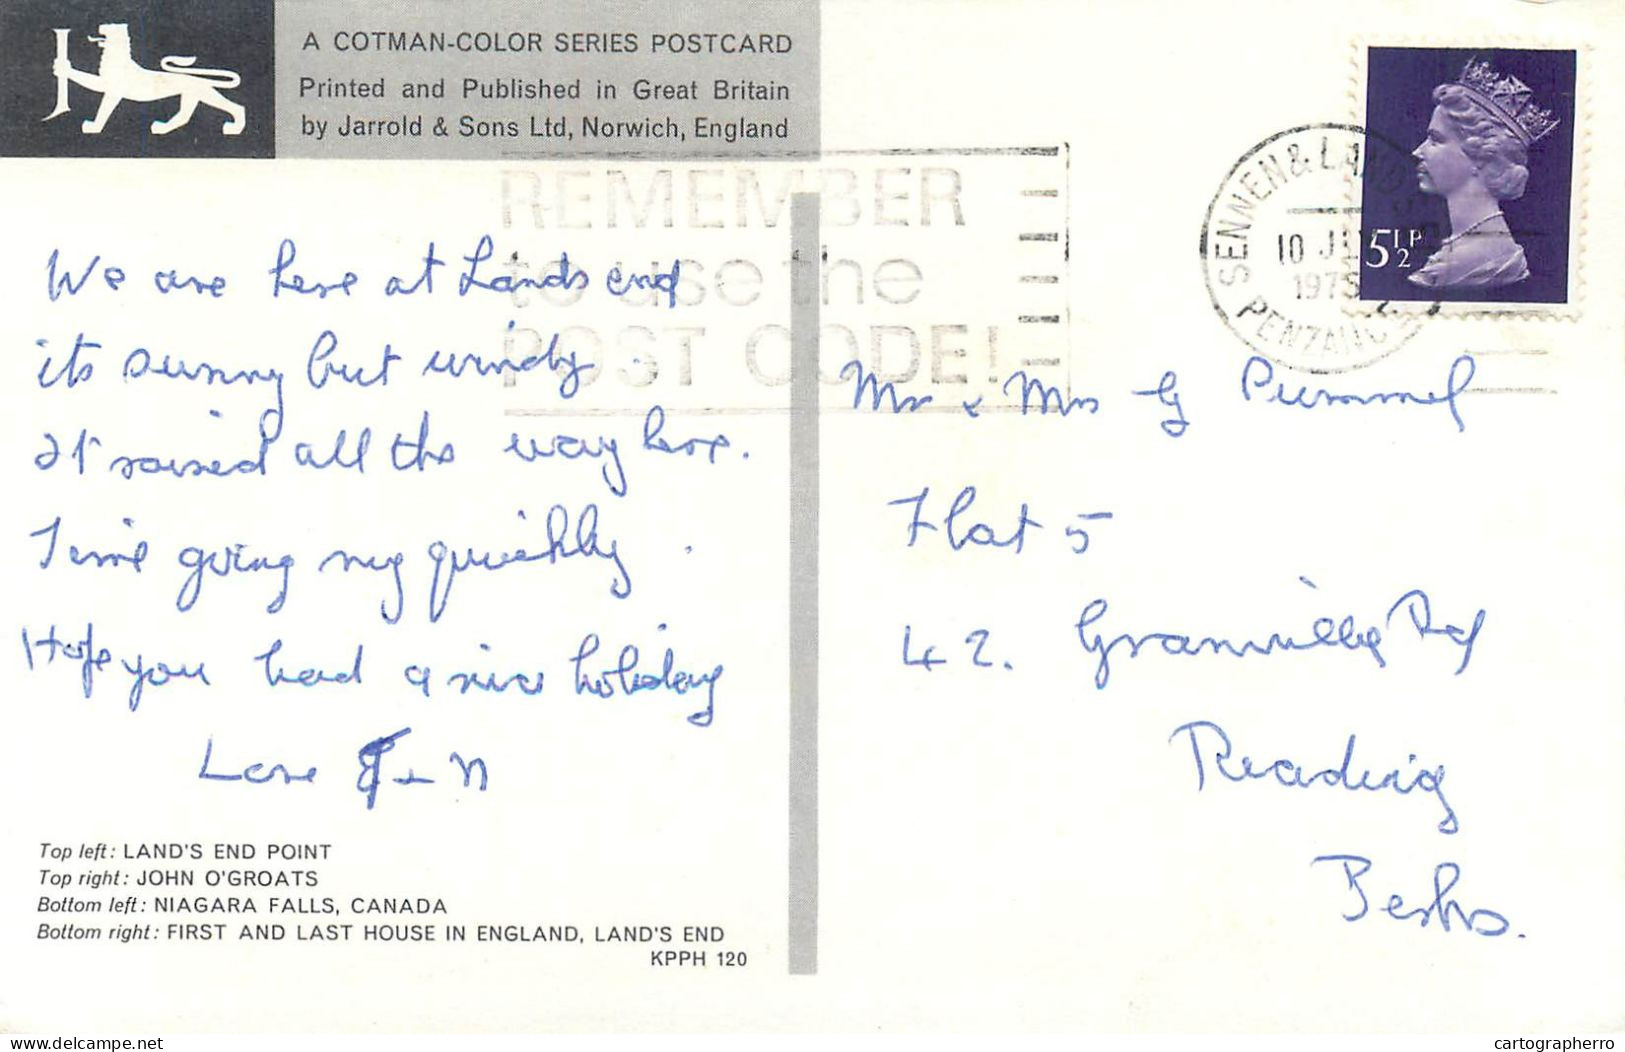 A COTMAN-COLOR SERIES POSTCARD
Printed and Published in Great Britain
by Jarrold & Sons Ltd, Norwich, England
REMEMBER
to use the
POST CODE!
SENNEN & LAND
10 1975
PENZANCE
5½P
We are here at Lands end
its sunny but windy
It rained all the way here.
Time going my quickly.
Hope you had a nice holiday
Love + N
Mr & Mrs G Pummel
Flat 5
42. Granville Rd
Reading
Berks.
Top left: LAND'S END POINT
Top right: JOHN O'GROATS
Bottom left: NIAGARA FALLS, CANADA
Bottom right: FIRST AND LAST HOUSE IN ENGLAND, LAND'S END
KPPH 120
delcampe.net
cartographerro